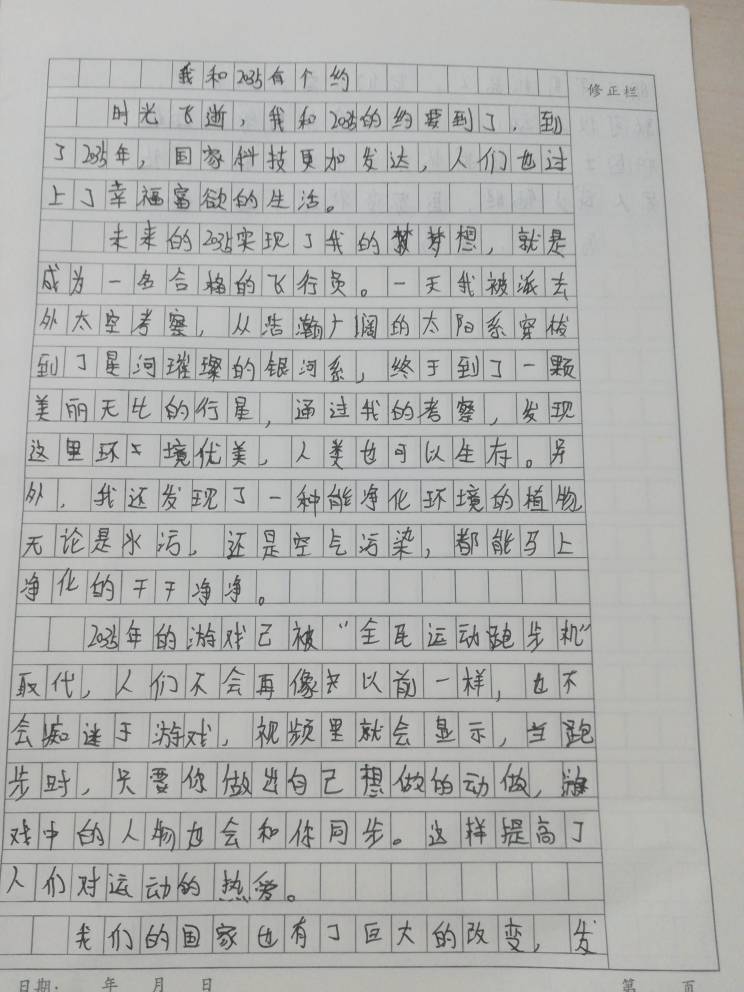 我和2035有个约
修正栏
时光飞逝，我和2035的约要到了，到
了2035年，国家科技更加发达，人们也过
上了幸福富欲的生活。
未来的2035实现了我的梦想，就是
成为一名合格的飞行员。一天我被派去
外太空考察，从浩瀚广阔的太阳系穿梭
到了星河璀璨的银河系，终于到了一颗
美丽无比的行星，通过我的考察，发现
这里环境优美，人类也可以生存。另
外，我还发现了一种能净化环境的植物
无论是水污，还是空气污染，都能马上
净化的干干净净。
2035年的游戏已被"全民运动跑步机"
取代，人们不会再像以前一样，也不
会痴迷于游戏，视频里就会显示，当跑
步时，只要你做出自己想做的动做，游
戏中的人物也会和你同步。这样提高了
人们对运动的热爱。
我们的国家也有了巨大的改变，发
日期： 年 月 日
第 页